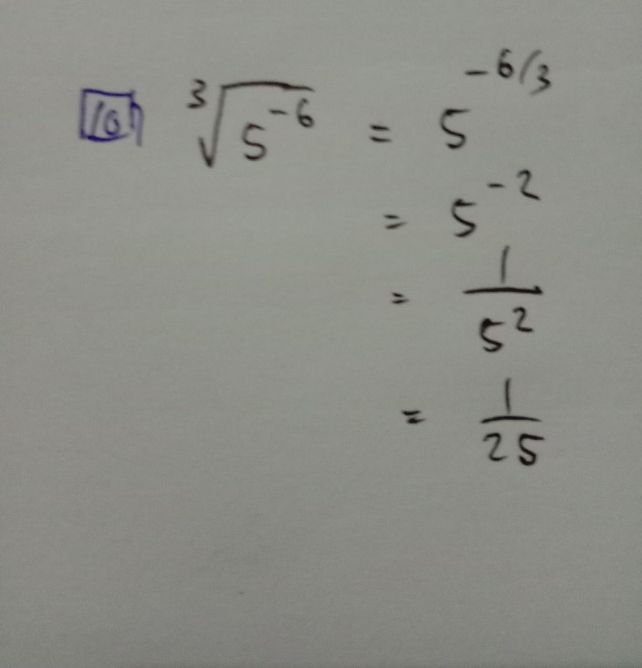 10) ∛(5⁻⁶) = 5^(-6/3)
= 5⁻²
= 1/5²
= 1/25